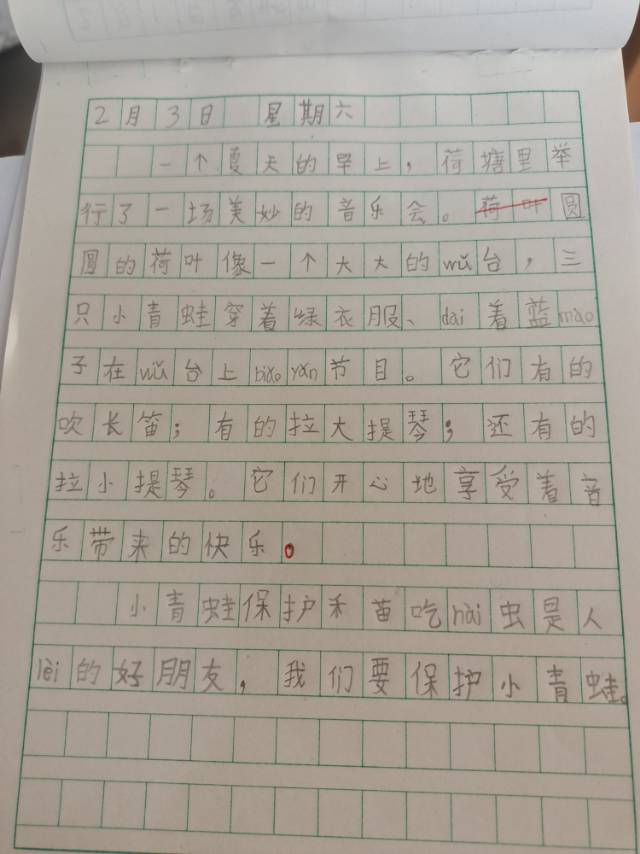 2月3日 星期六
一个夏天的早上，荷塘里举
行了一场美妙的音乐会。荷叶圆
圆的荷叶像一个大大的wǔ台，三
只小青蛙穿着绿衣服、dai着蓝mào
子在wǔ台上biǎo yǎn节目。它们有的
吹长笛；有的拉大提琴；还有的
拉小提琴。它们开心地享受着音
乐带来的快乐。
小青蛙保护禾苗吃hài虫是人
lèi的好朋友，我们要保护小青蛙。